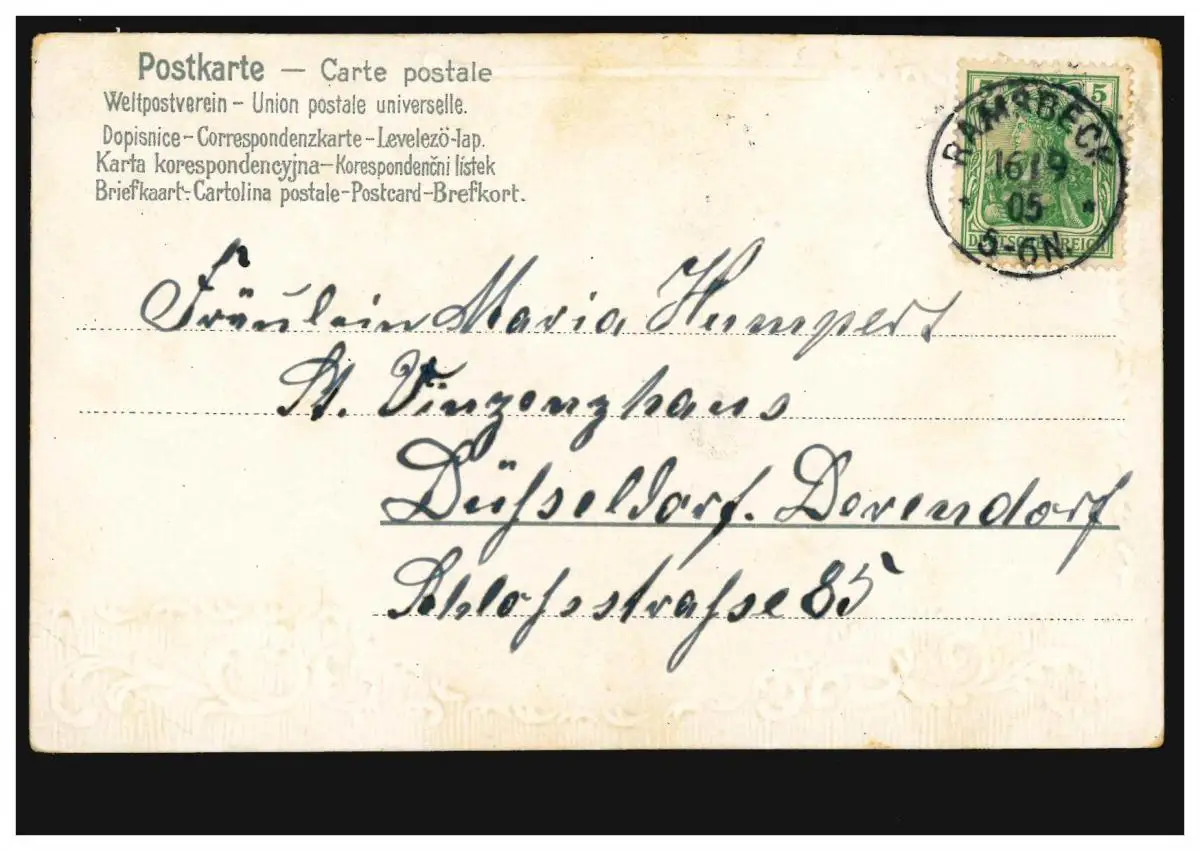 Postkarte — Carte postale
Weltpostverein – Union postale universelle.
Dopisnice – Correspondenzkarte – Levelező-lap.
Karta korespondencyjna – Korespondenční lístek
Briefkaart – Cartolina postale – Postcard – Brefkort.
5 5
RAMSBECK
16 9
05
5-6N.
DEUTSCHES REICH
Fräulein Maria Humpert
St. Vinzenzhaus
Düſseldorf. Derendorf
Schloſsstraſse 85